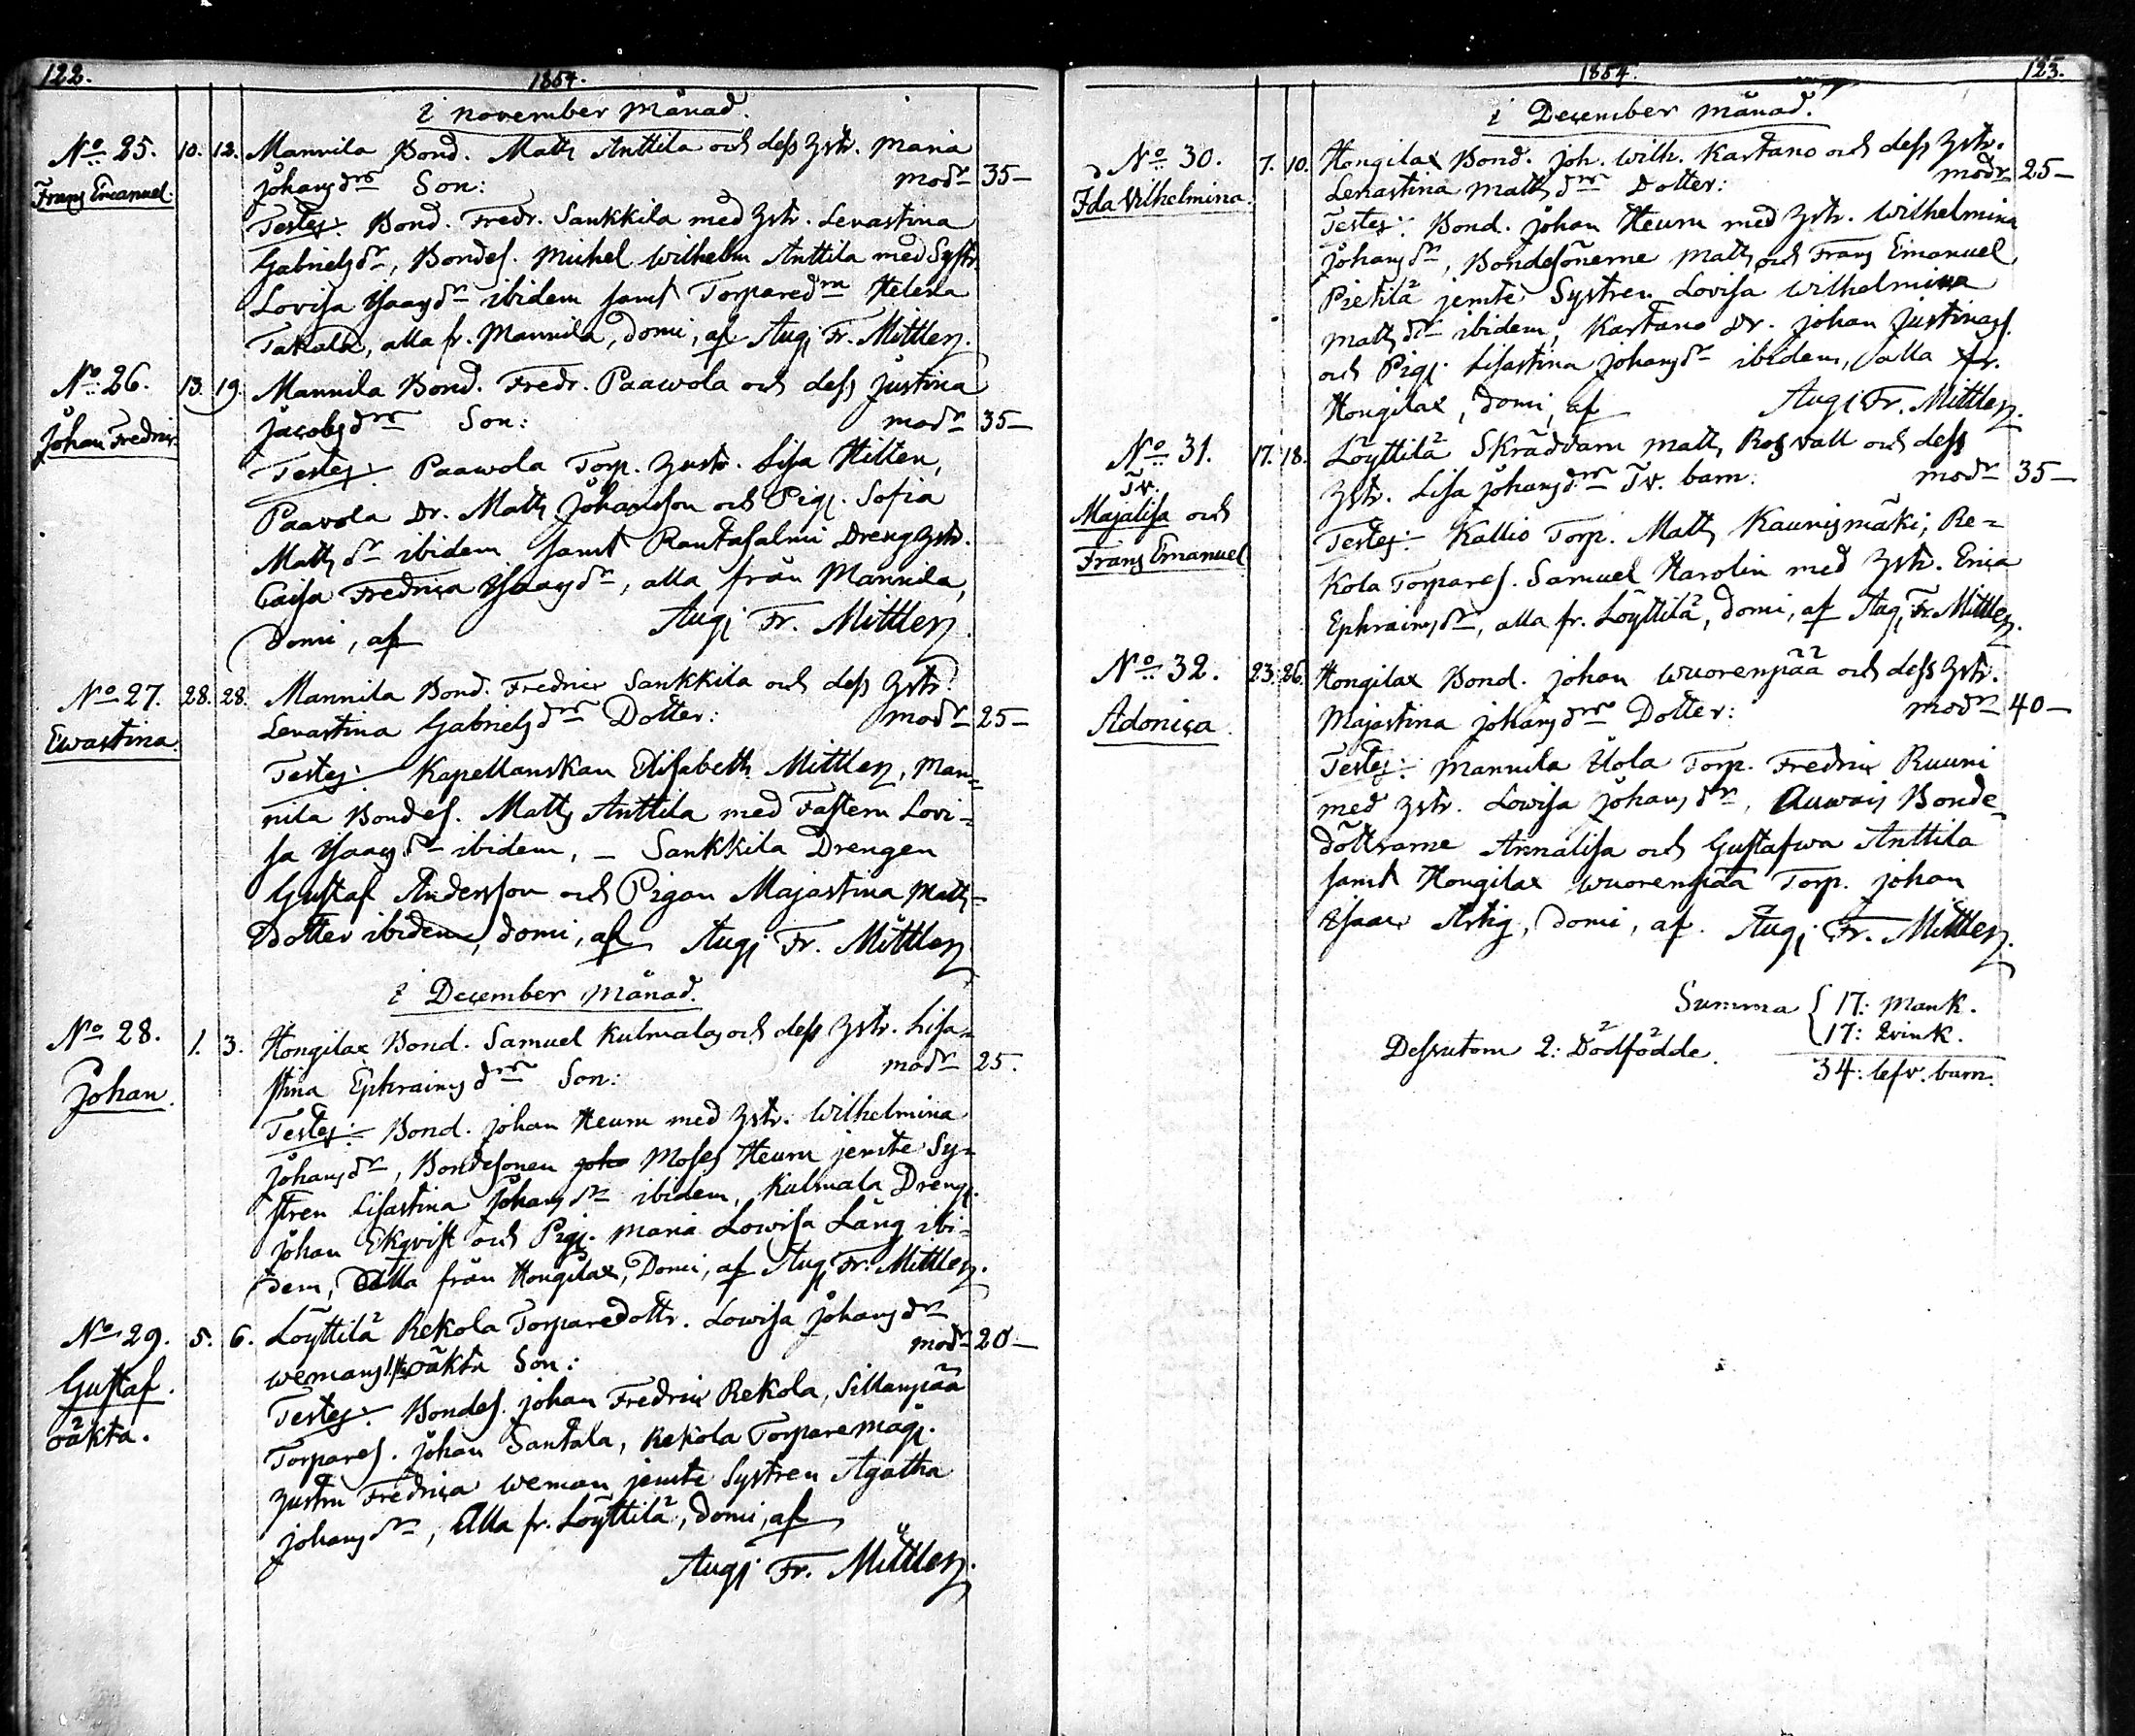 122.
1854.
i november månad.
No 25. 10. 12. Mannila Bond. Matts Anttila och dess hstr. Maria
Frans Emanuel. Johansdrs Son: modr 35—
Testes: Bond. Fredr. Sankkila med hstr. Lenastina
Gabrielsdr, Bondes. Michel Wilhelm Anttila med Systr.
Lovisa Isaacsdr ibidem samt Torparedrn Helena
Takala, alla fr. Mannila, domi, af Aug. Fr. Mittler.
No 26. 13. 19. Mannila Bond. Fredr. Paawola och dess Justina
Johan Fredric Jacobsdrs Son: modr 35—
Testes: Paawola Torp. hustr. Lisa Hilten,
Paavola Dr. Matts Johansson och Pig. Sofia
Mattsdr ibidem samt Rantasalmi Drenghstr.
Caisa Fredrica Isaacsdr, alla från Mannila,
Domi, af Aug. Fr. Mittler.
No 27. 28. 28. Mannila Bond. Fredric Sankkila och dess hstr.
Ewastina Lenastina Gabrielsdrs Dotter: modr 25—
Testes: Kapellanskan Elisabeth Mittler, Man-
nila Bondes. Matts Anttila med Fastern Lovi-
sa Isaacsdr ibidem, — Sankkila Drengen
Gustaf Andersson och Pigan Majastina Matts-
Dotter ibidem, domi, af Aug. Fr. Mittler
i December månad.
No 28. 1. 3. Hongilax Bond. Samuel Kulmalas och dess hstr. Lisa-
Johan. stina Ephraimsdrs Son: modr 25.
Testes: Bond. Johan Heurn med hstr. Wilhelmina
Johansdr, Bondesonen Joha Moses Heurn jemte Sy-
stren Lisastina Johansdr ibidem, Kulmala Dreng.
Johan Ekqvist och Pig. Maria Lowisa Lång ibi-
dem, Alla från Hongilax, Domi, af Aug. Fr. Mittler.
No 29. 5. 6. Löyttilä Rekola Torparedottr. Lowisa Johansdr
Gustaf. Wemans oäkta Son: modr 20—
oäkta. Testes: Bondes. Johan Fredric Rekola, Sillanpää
Torpares. Johan Santala, Rekola Torparemåg.
hustru Fredrica Weman jemte Systren Agatha
Johansdr, Alla fr. Löyttilä, domi, af
Aug. Fr. Mittler.
1854.
123.
i December månad.
No 30. 7. 10. Hongilax Bond. Joh. Wilh. Kartano och dess hstr.
Ida Vilhelmina. Lenastina Mattsdrs Dotter: modr 25—
Testes: Bond. Johan Heurn med hstr. Wilhelmina
Johansdr, Bondesönerne Matts och Frans Emanuel
Pietilä jemte Systren Lovisa Wilhelmina
Mattsdr ibidem, Kartano Dr. Johan Justinas.
och Pig. Lisastina Johansdr ibidem, alla fr.
Hongilax, Domi, af Aug. Fr. Mittler.
No 31. 17. 18. Löyttilä Skräddarn Matts Rosvall och dess
Tv. hstr. Lisa Johansdrs Tv. barn: modr 35—
Majalisa och Testes: Kallio Torp. Matts Kaunismäki; Re-
Frans Emanuel kola Torpares. Samuel Harolin med hstr. Erica
Ephraimsdr, alla fr. Löyttilä, domi, af Aug. Fr. Mittler.
No 32. 23. 26. Hongilax Bond. Johan Wuorenpää och dess hstr.
Adonica Majastina Johansdrs Dotter: modr 40—
Testes: Mannila Uola Torp. Fredric Ruuni
med hstr. Lowisa Johansdr, Auwais Bonde-
döttrarne Annalisa och Gustafwa Anttila
samt Hongilax Wuorenpää Torp. Johan
Isaac Artig, domi, af. Aug. Fr. Mittler.
Summa { 17: Mank.
17: Qvink.
Dessutom 2: Dödfödde. 34: lefv. barn.